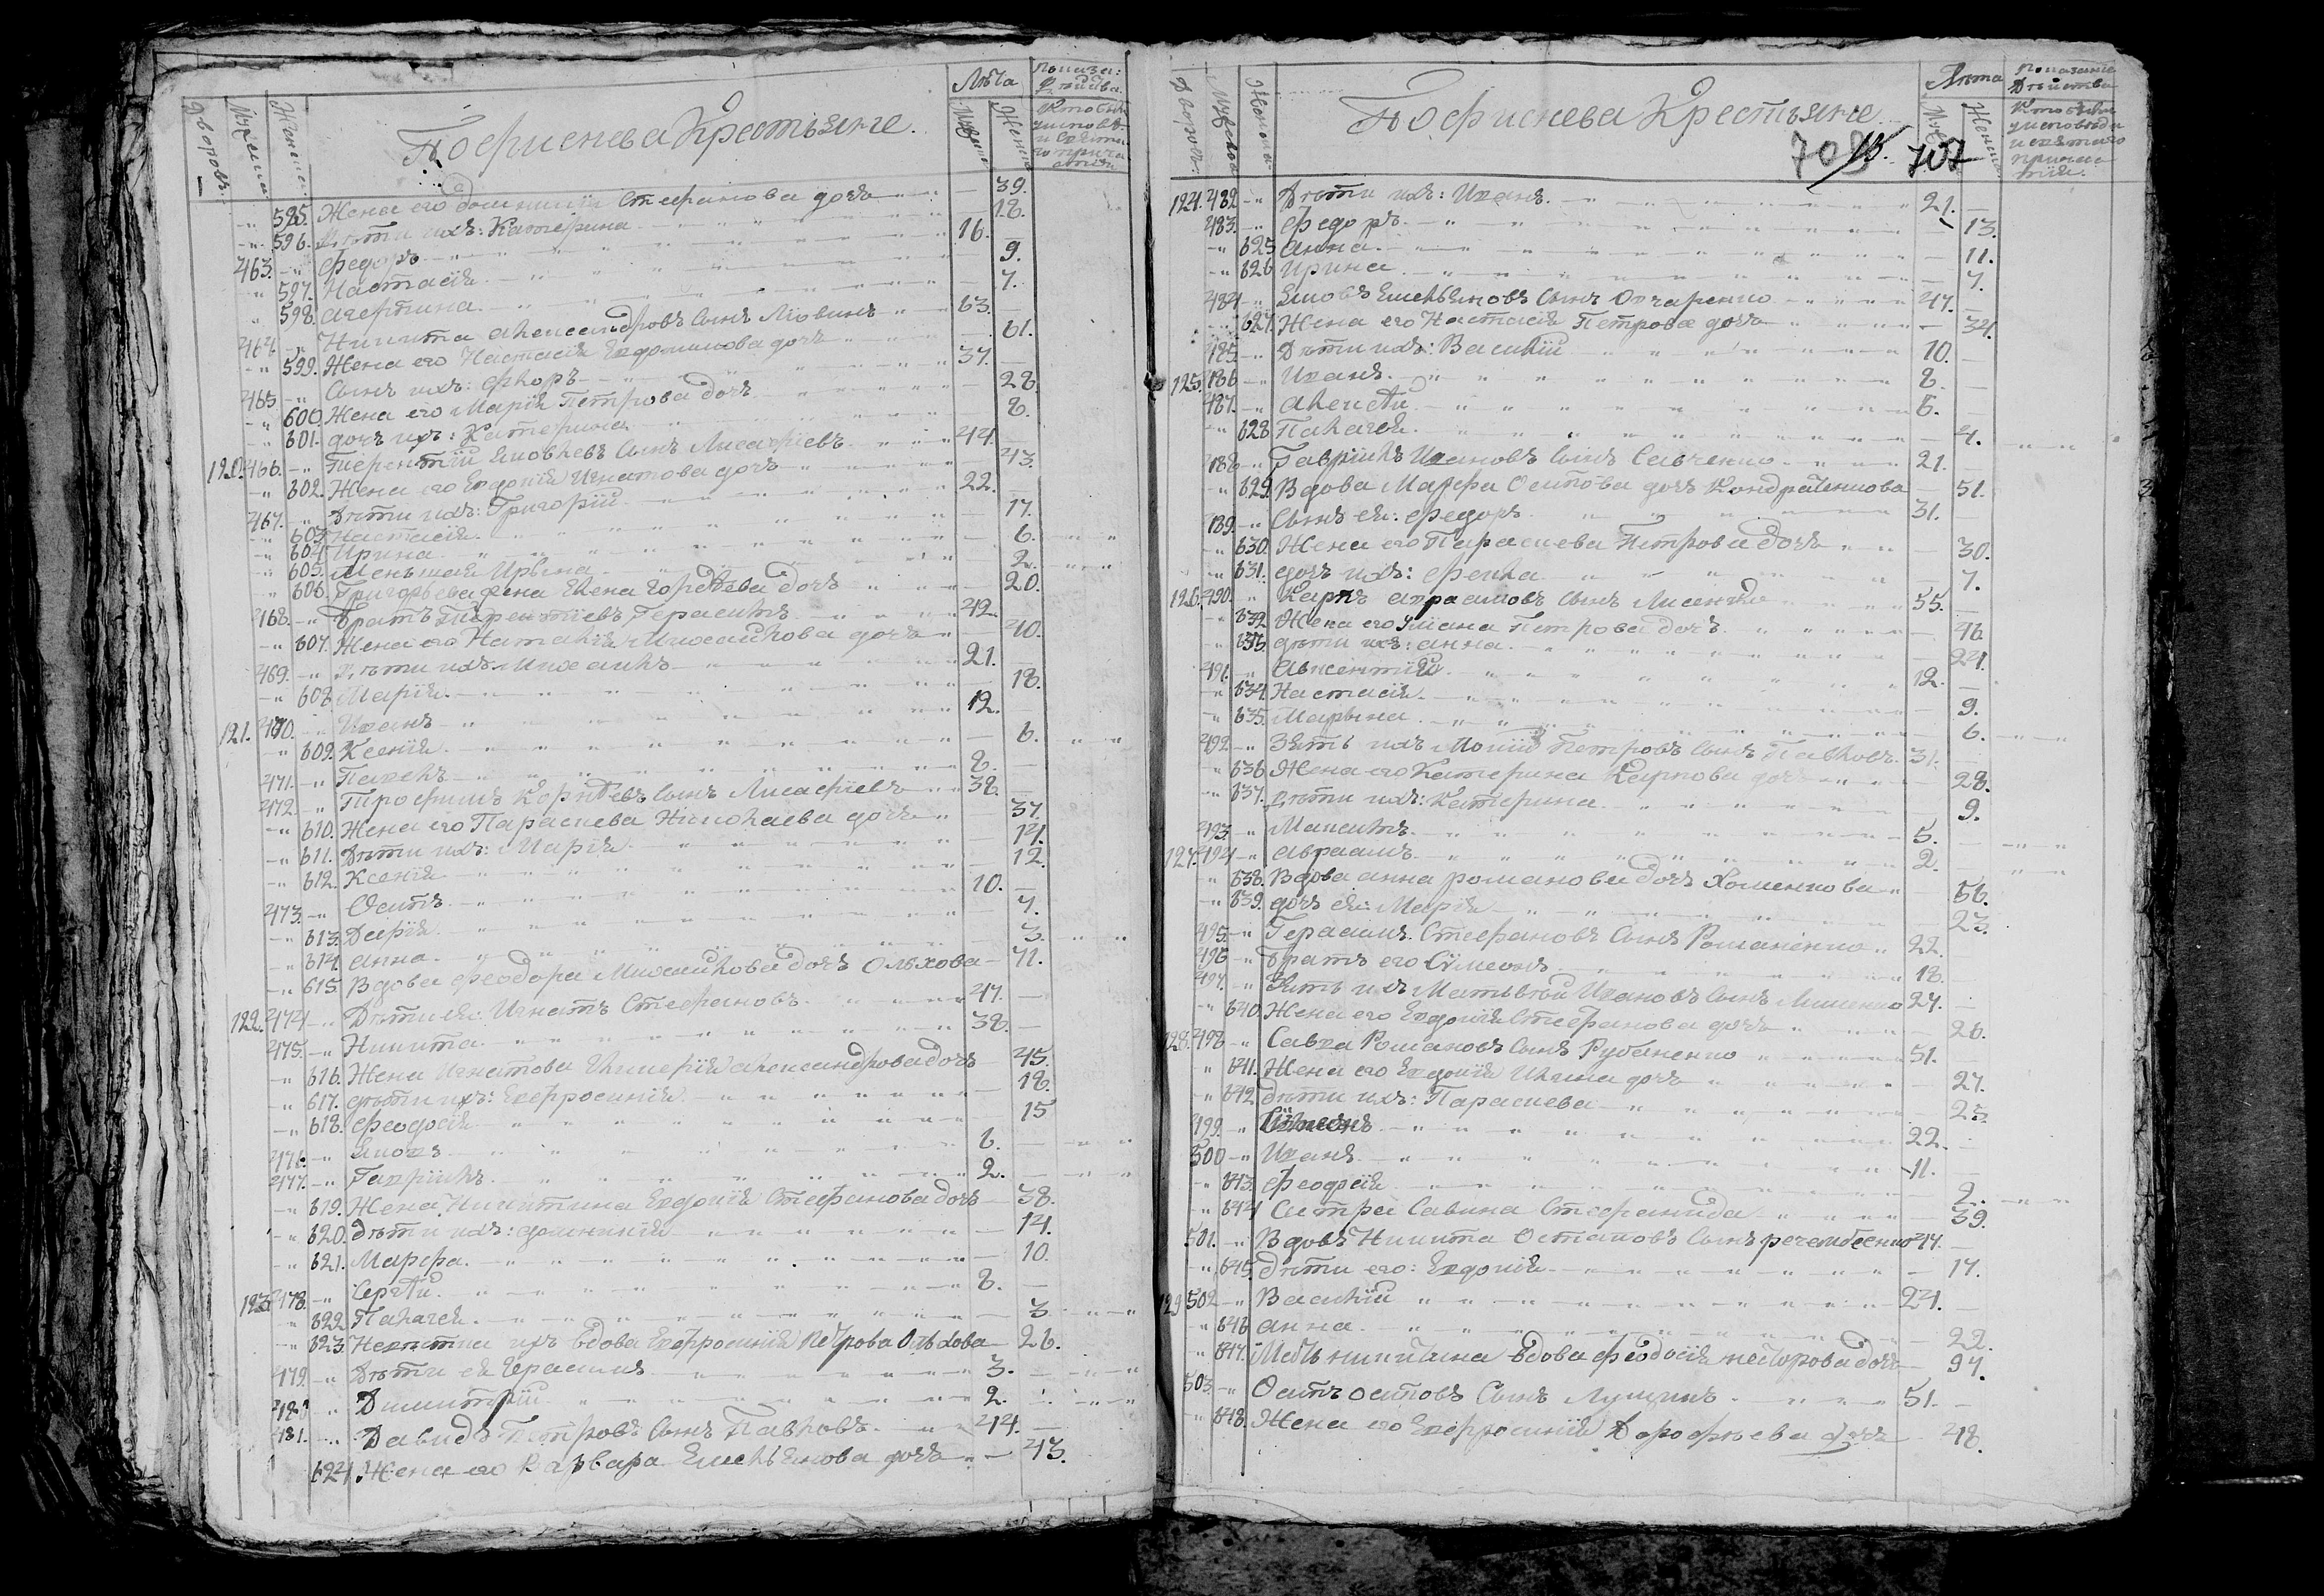 Дворовъ
Мужеска
Женска
Пофиенева Крестьяне.
Лѣта
Мужеска
Женска
1
" 595. Жена его Домникия Стефанова дочь — 39.
" 596. Дѣти ихъ: Катерина — 18.
463. " Федоръ 16. —
" 597. Настасія — 9.
" 598. Агафина — 7.
464. " Никита Александровъ сынъ 63.
" 599. Жена его Настасія дочь — 61.
465. " Сынъ ихъ: Флоръ 37. —
" 600. Жена его Марія Петрова дочь — 28.
" 601. дочь ихъ: Катерина — 8.
120. 466. " Терентій Яковлевъ сынъ Лисафіевъ 44. —
" 602. Жена его Евдокія Игнатова дочь — 43.
467. " Дѣти ихъ: Григорій 22. —
" 603. Настасія — 17.
" 604. Ирина — 6.
" 605. Меньшая Ирина — 2.
" 606. Григорьева жена Елена дочь — 20.
468. " Братъ Терентіевъ Герасимъ 42. —
" 607. Жена его Наталія Михайлова дочь — 40.
469. " Дѣти ихъ: Михаилъ 21. —
" 608. Марія — 18.
121. 470. " Иванъ 12. —
" 609. Ксенія — 6.
471. " Павелъ 8. —
472. " Трофимъ Корнѣевъ сынъ Лисафіевъ 38. —
" 610. Жена его Параскева Николаева дочь — 37.
" 611. Дѣти ихъ: Марія — 14.
" 612. Ксенія — 12.
473. " Осипъ 10. —
" 613. Дарія — 7.
" 614. Анна — 3.
" 615. Вдова Феодора Михайлова дочь Ольхова — 71.
122. 474. " Дѣти ея: Игнатъ Стефановъ 47. —
475. " Никита 38. —
" 616. Жена Игнатова Гликерія Александрова дочь — 45.
" 617. дѣти ихъ: Евфросинія — 18.
" 618. Феодосія — 15
476. " Яковъ 6. —
477. " Гавріилъ 2. —
" 619. Жена Никитина Евдокія Стефанова дочь — 38.
" 620. дѣти ихъ: Домникія — 14.
" 621. Марфа — 10.
123. 478. " Сергѣй 8. —
" 622. Палагея — 3
" 623. Невѣстка ихъ вдова Евфросинія Петрова Ольхова — 26.
479. " Дѣти ея Герасимъ 3. —
480 " Димитрій 2.
481. " Давидъ Петровъ сынъ Павловъ 44. —
624. Жена его Варвара Емельянова дочь — 43.
Дворовъ
Мужеска
Женска
Пофиснева Крестьяне
707
Лѣта
Показаніе
Дѣйства
124. 482. " Дѣти ихъ: Иванъ 21. —
483. " Федоръ 13.
" 625 Анна — 11.
" 626 Ирина — 7.
484 " Яковъ Емельяновъ сынъ Овчаренко 47. —
" 627. Жена его Настасія Петрова дочь — 34.
485. " Дѣти ихъ: Василій 10. —
125. 486 " Иванъ 8. —
487. " Алексѣй 6. —
" 628 Палагея — 4.
488 " Гавріилъ Ивановъ сынъ Савченко 21. —
" 629 Вдова Марфа Осипова дочь Кондратенкова — 51.
489. " Сынъ ея: Федоръ 31. —
" 630. Жена его Параскева Петрова дочь — 30.
" 631. дочь ихъ: Фекла — 7.
126. 490. " Карпъ Авраамовъ сынъ Лисенко 55. —
" 632. Жена его Уліана Петрова дочь — 46.
" 633. дѣти ихъ: Анна — 24.
491. " Авксентій 12. —
" 634. Настасія — 9.
" 635. Марьина — 6.
492. " Зять ихъ Петровъ сынъ Павловъ 31. —
" 636. Жена его Катерина Карпова дочь — 28.
" 637. дѣти ихъ: Катерина — 9.
493. " Максимъ 5. —
127. 494 " Авраамъ 2.
" 638. Вдова Анна Романова дочь Хоменкова — 56.
" 639. дочь ея: Марія — 23.
495. " Герасимъ Стефановъ сынъ Романенко 22.
496 " Братъ его Сѵмеонъ 18.
497. " Зять ихъ Матвѣй Ивановъ сынъ 27.
" 640. Жена его Евдокія Стефанова дочь — 26.
128. 498 " Савва Романовъ сынъ Рубаненко 51.
" 641. Жена его Евдокія Ильина дочь — 27.
" 642 дѣти ихъ: Параскева — 25.
499. " Сѵмеонъ 22.
500 " Иванъ 11.
" 643. Феодосія — 2.
" 644 Сестра Савина Стефанида — 39.
501. " Вдовъ Никита Остаповъ сынъ 47.
" 645. Дѣти его: Евдокія — 17.
129 502 " Василій 24. —
" 646 Анна — 22.
" 647. Мать Никитина вдова Феодосія Несторова дочь — 97.
503. " Осипъ Осиповъ сынъ Лущикъ 51. —
" 648. Жена его Евфросинія Дорофѣева дочь 48.